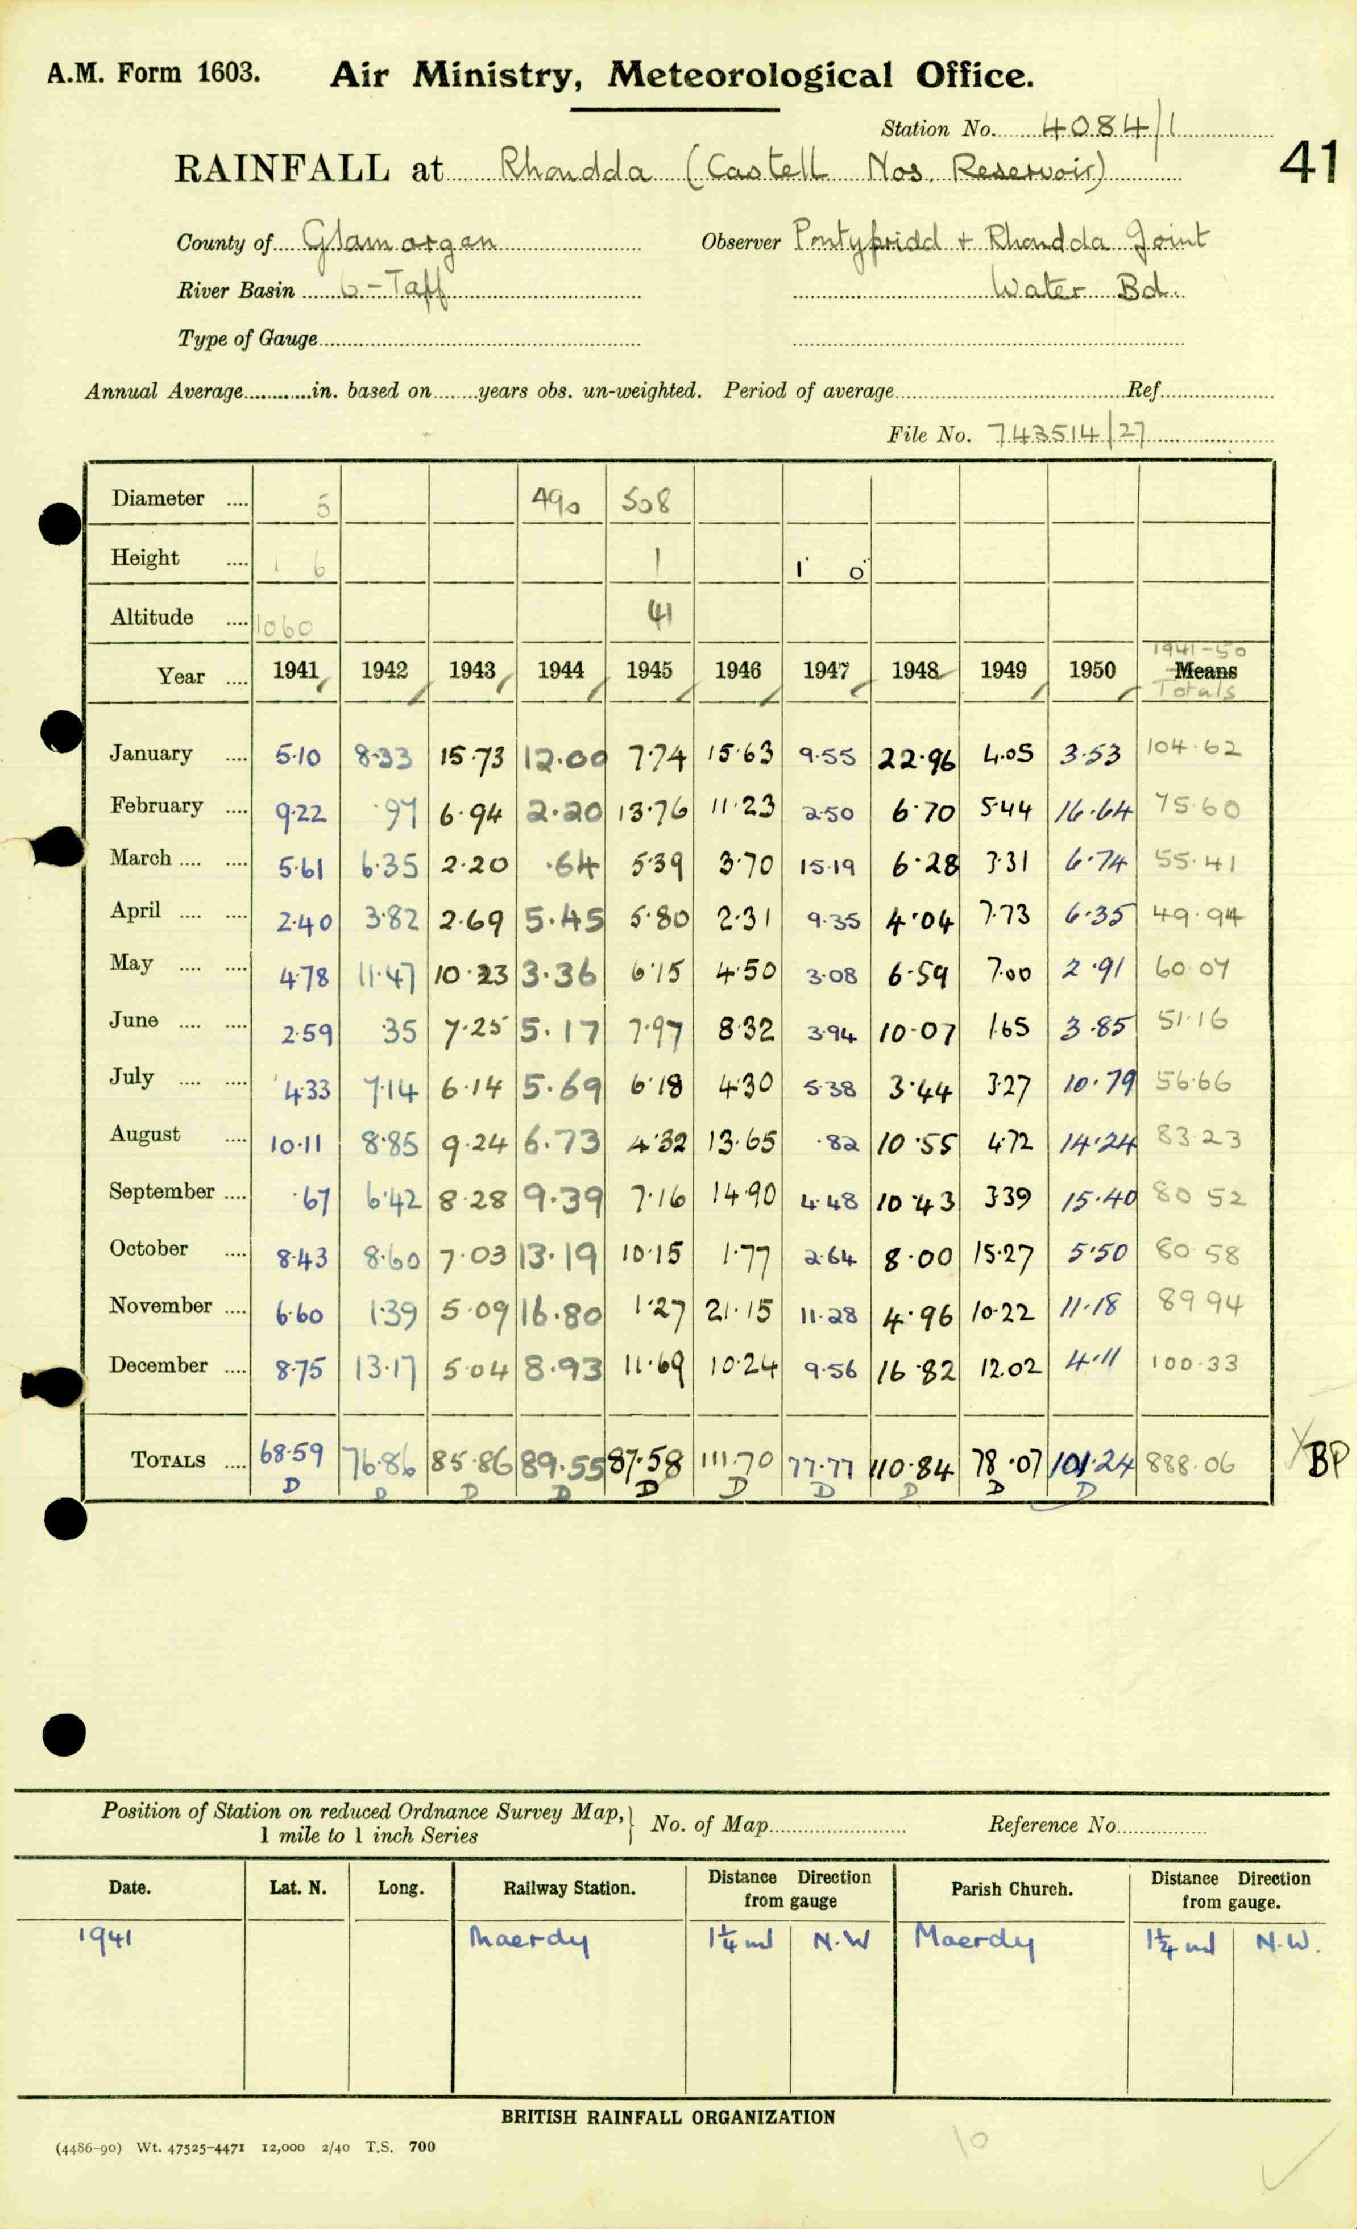 A.M. Form 1603. Air Ministry, Meteorological Office.
Station No. 4084/1
41
RAINFALL at Rhondda (Castell Nos. Reservoir)
County of Glamorgan Observer Pontypridd + Rhondda Joint
River Basin 6-Taff Water Bd.
Type of Gauge
Annual Average in. based on years obs. un-weighted. Period of average Ref
File No. 743514/27
Diameter 5 490 508
Height 1 6 1 1 0
Altitude 1060 41
1941-50
Year 1941 1942 1943 1944 1945 1946 1947 1948 1949 1950 Means
Totals
January 5.10 8.33 15.73 12.00 7.74 15.63 9.55 22.96 4.05 3.53 104.62
February 9.22 .97 6.94 2.20 13.76 11.23 2.50 6.70 5.44 16.64 75.60
March 5.61 6.35 2.20 .64 5.39 3.70 15.19 6.28 3.31 6.74 55.41
April 2.40 3.82 2.69 5.45 5.80 2.31 9.35 4.04 7.73 6.35 49.94
May 4.78 11.47 10.23 3.36 6.15 4.50 3.08 6.59 7.00 2.91 60.07
June 2.59 .35 7.25 5.17 7.97 8.32 3.94 10.07 1.65 3.85 51.16
July 4.33 7.14 6.14 5.69 6.18 4.30 5.38 3.44 3.27 10.79 56.66
August 10.11 8.85 9.24 6.73 4.32 13.65 .82 10.55 4.72 14.24 83.23
September .67 6.42 8.28 9.39 7.16 14.90 4.48 10.43 3.39 15.40 80.52
October 8.43 8.60 7.03 13.19 10.15 1.77 2.64 8.00 15.27 5.50 80.58
November 6.60 1.39 5.09 16.80 1.27 21.15 11.28 4.96 10.22 11.18 89.94
December 8.75 13.17 5.04 8.93 11.69 10.24 9.56 16.82 12.02 4.11 100.33
TOTALS 68.59 76.86 85.86 89.55 87.58 111.70 77.77 110.84 78.07 101.24 888.06 BP
D D D D D D D D D D
Position of Station on reduced Ordnance Survey Map, No. of Map Reference No
1 mile to 1 inch Series
Date. Lat. N. Long. Railway Station. Distance Direction from gauge Parish Church. Distance Direction from gauge.
1941 Maerdy 1¼ ml N.W Maerdy 1¼ ml N.W.
BRITISH RAINFALL ORGANIZATION
(4486-90) Wt. 47525-4471 12,000 2/40 T.S. 700
10